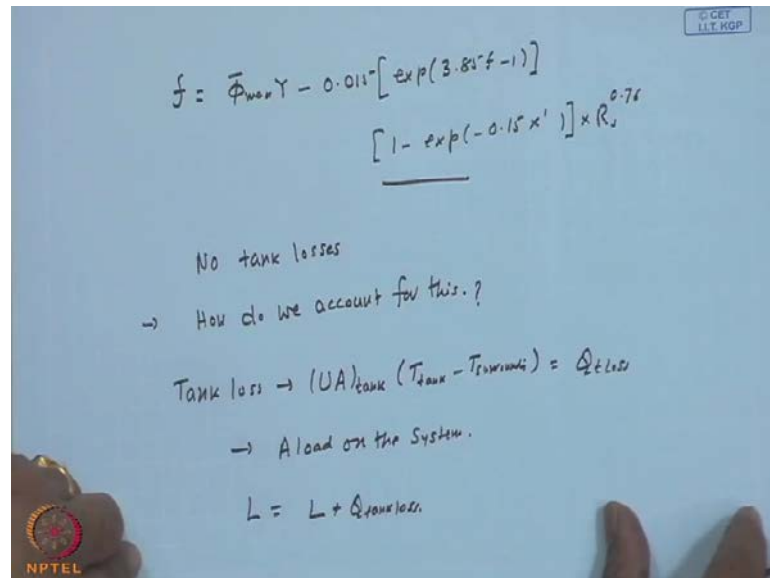 © CET
I.I.T. KGP
f = Φ̄max Y - 0.015 [exp(3.85 f - 1)]
[1 - exp(-0.15 x')] × Rs^0.76
No tank losses
→ How do we account for this.?
Tank loss → (UA)tank (Ttank - Tsurroundi) = Qt loss
→ A load on the System.
L = L + Qtank loss.
NPTEL